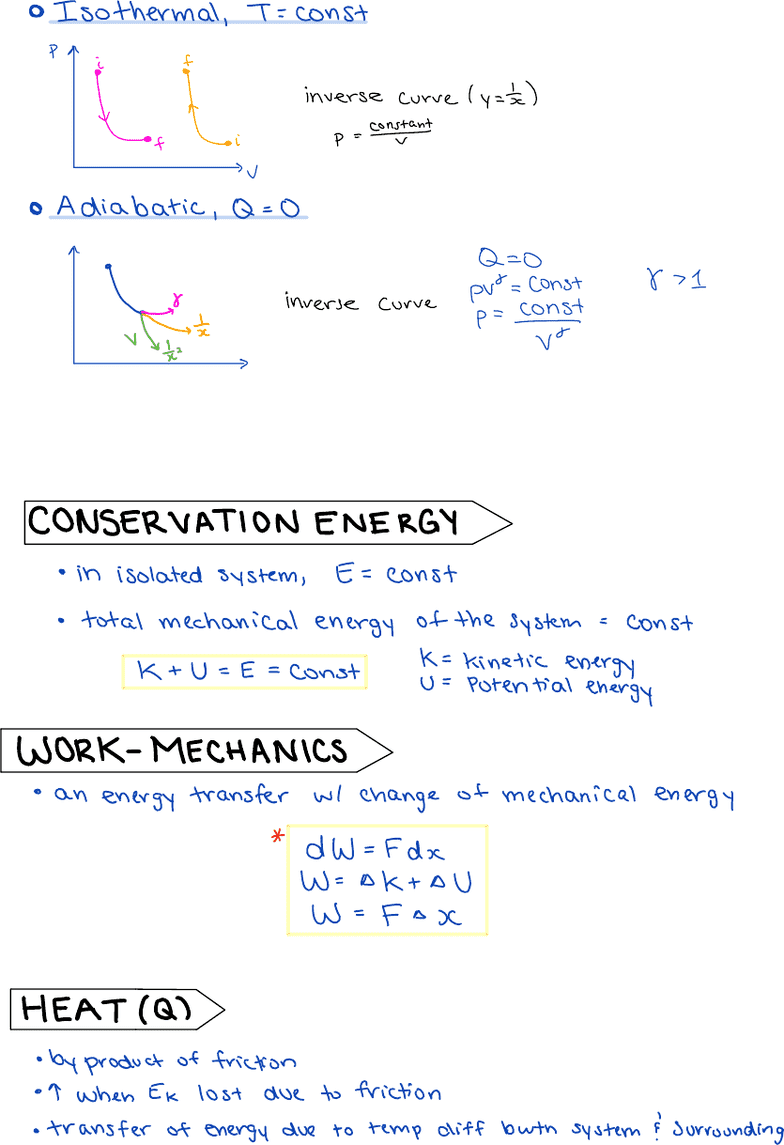 • Isothermal, T = const
P
i
f
f
i
V
inverse curve (y = 1/x)
P = constant/V
• Adiabatic, Q = 0
γ
1/x
1/x²
V
inverse curve
Q = 0
PV^γ = const
P = const/V^γ
γ > 1
CONSERVATION ENERGY
• in isolated system, E = const
• total mechanical energy of the system = const
K + U = E = const
K = kinetic energy
U = Potential energy
WORK - MECHANICS
• an energy transfer w/ change of mechanical energy
* dW = F dx
W = ΔK + ΔU
W = F Δx
HEAT (Q)
• by product of friction
• ↑ when EK lost due to friction
• transfer of energy due to temp diff bwtn system & surrounding